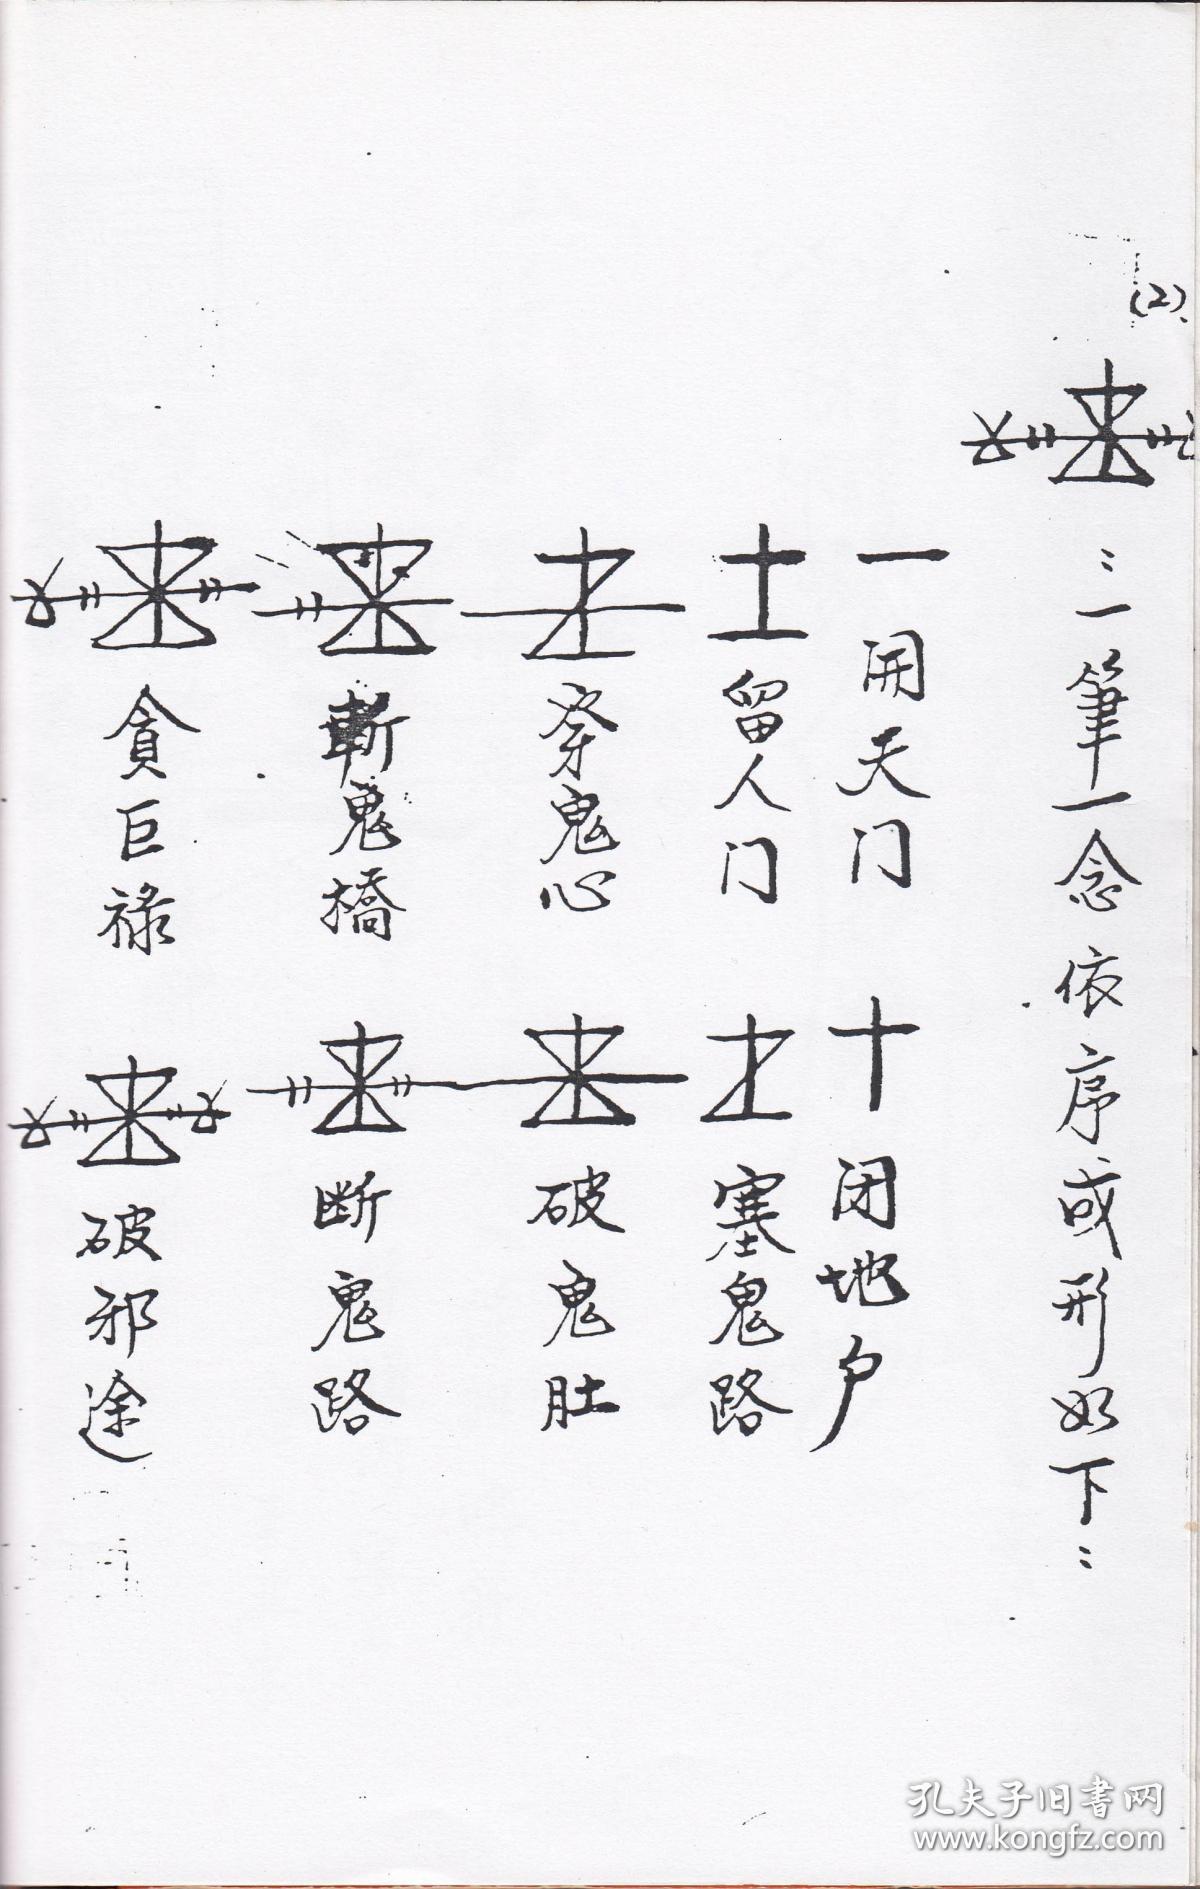 (2)
：一筆一念依序成形如下：
開天门
闭地户
留人门
塞鬼路
穿鬼心
破鬼肚
斬鬼橋
断鬼路
貪巨禄
破邪途
孔夫子旧书网
www.kongfz.com